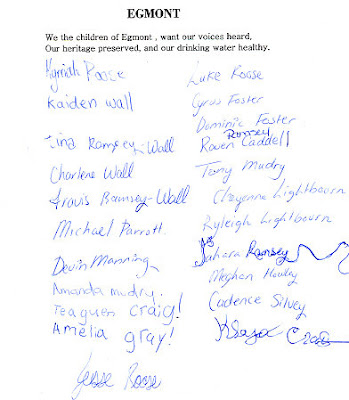 EGMONT
We the children of Egmont , want our voices heard,
Our heritage preserved, and our drinking water healthy.
Kaiden Wall
Tina Ramsey-Wall
Charlene Wall
Travis Ramsey-Wall
Michael Parrott
Devin Manning
Amanda mudry.
Teaguen craig!
Amelia gray!
Jesse Roose
Luke Roose
Cyrus Foster
Dominic Foster
Ramsey
Raven Caddell
Tony Mudry
Cheyenne Lightbourn
Ryleigh Lightbourn
Sahara Ramsey
Meghan
Cadence Silvey